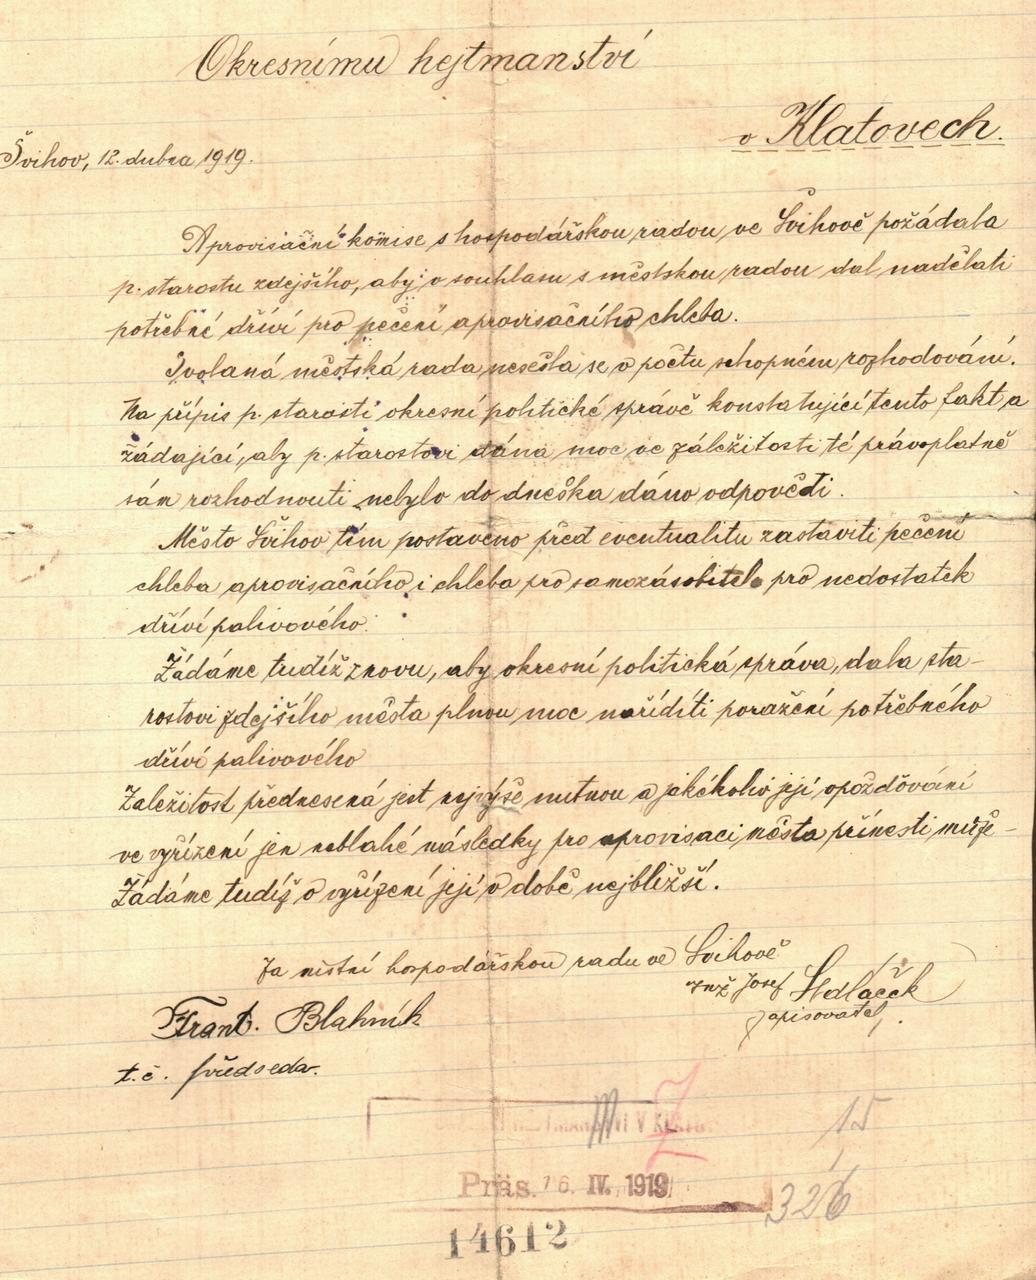 Okresnímu hejtmanství
v Klatovech.
Švihov, 12. dubna 1919.
Aprovisační komise s hospodářskou radou ve Švihově požádala
p. starostu zdejšího, aby v souhlasu s městskou radou dal nadělati
potřebné dříví pro pečení aprovisačního chleba.
Svolaná městská rada nesešla se v počtu schopném rozhodování.
Na přípis p. starosti okresní politické správě konstatující tento fakt a
žádající, aby p. starostovi dána moc ve záležitosti té právoplatně
sám rozhodnouti nebylo do dneška dáno odpovědi.
Město Švihov tím postaveno před eventualitu zastaviti pečení
chleba aprovisačního i chleba pro samozásobitele pro nedostatek
dříví palivového.
Žádáme tudíž znovu, aby okresní politická správa, dala sta-
rostovi zdejšího města plnou moc naříditi poražení potřebného
dříví palivového
Záležitost přednesená jest nejvýše nutnou a jakékoliv její opožďování
ve vyřízení jen neblahé následky pro aprovisaci města přinesti může -
Žádáme tudíž o vyřízení její v době nejbližší.
Za místní hospodářskou radu ve Švihově
Inž Josef Sedláček
zapisovatel.
Frant. Blahník
t.č. předseda.
V
15
Präs. 16. IV. 1919
326
14612